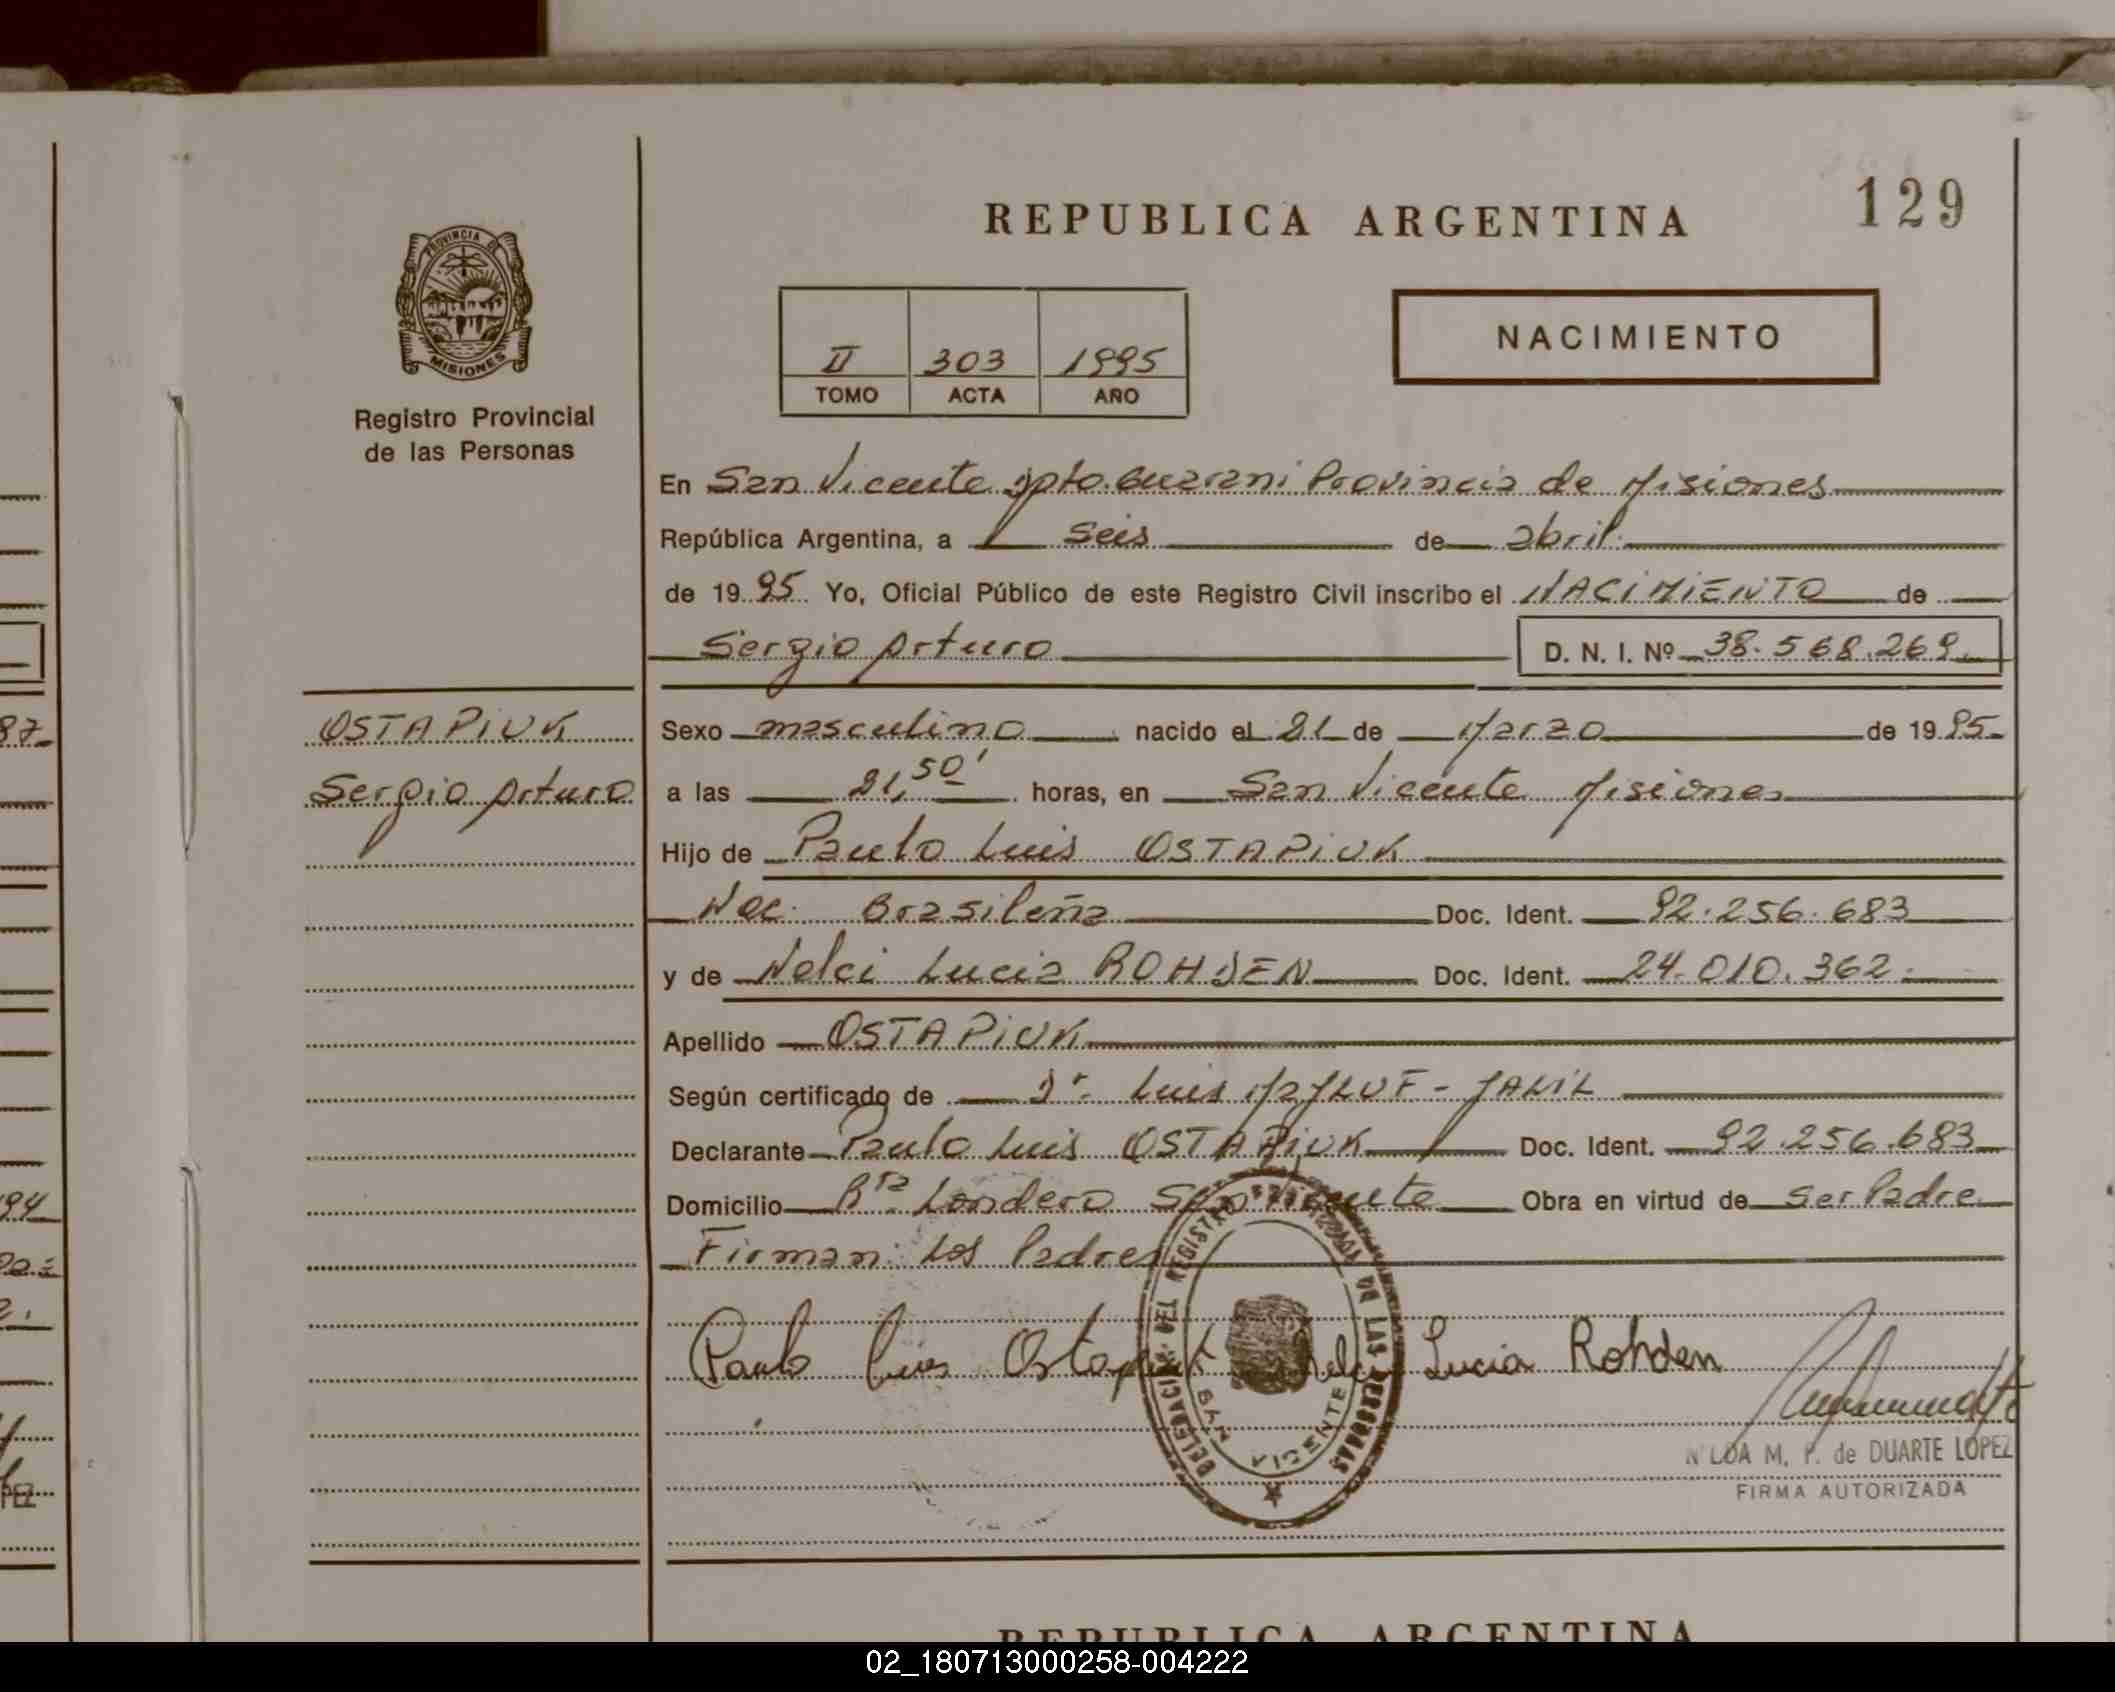 129
REPUBLICA ARGENTINA
PROVINCIA DE
MISIONES
Registro Provincial
de las Personas
II 303 1995
TOMO ACTA AÑO
NACIMIENTO
En San Vicente Dpto. Guarani Provincia de Misiones
República Argentina, a seis de abril
de 1995 Yo, Oficial Público de este Registro Civil inscribo el NACIMIENTO de
Sergio Arturo D. N. I. Nº 38.568.269
OSTAPIUK
Sergio Arturo
Sexo masculino nacido el 21 de Marzo de 1995
a las 21,50' horas, en San Vicente Misiones
Hijo de Paulo Luis OSTAPIUK
Nac. Brasileña Doc. Ident. 92.256.683
y de Nelci Lucia ROHDEN Doc. Ident. 24.010.362
Apellido OSTAPIUK
Según certificado de Dr. Luis
Declarante Paulo Luis OSTAPIUK Doc. Ident. 92.256.683
Domicilio Londero San Vicente Obra en virtud de ser Padre
Firman: Los Padres
Paulo Luis Ostapiuk Nelci Lucia Rohden
DELEGACION DEL REGISTRO PROVINCIAL DE LAS PERSONAS
SAN VICENTE
M. P. de DUARTE LOPEZ
FIRMA AUTORIZADA
REPUBLICA ARGENTINA
02_180713000258-004222